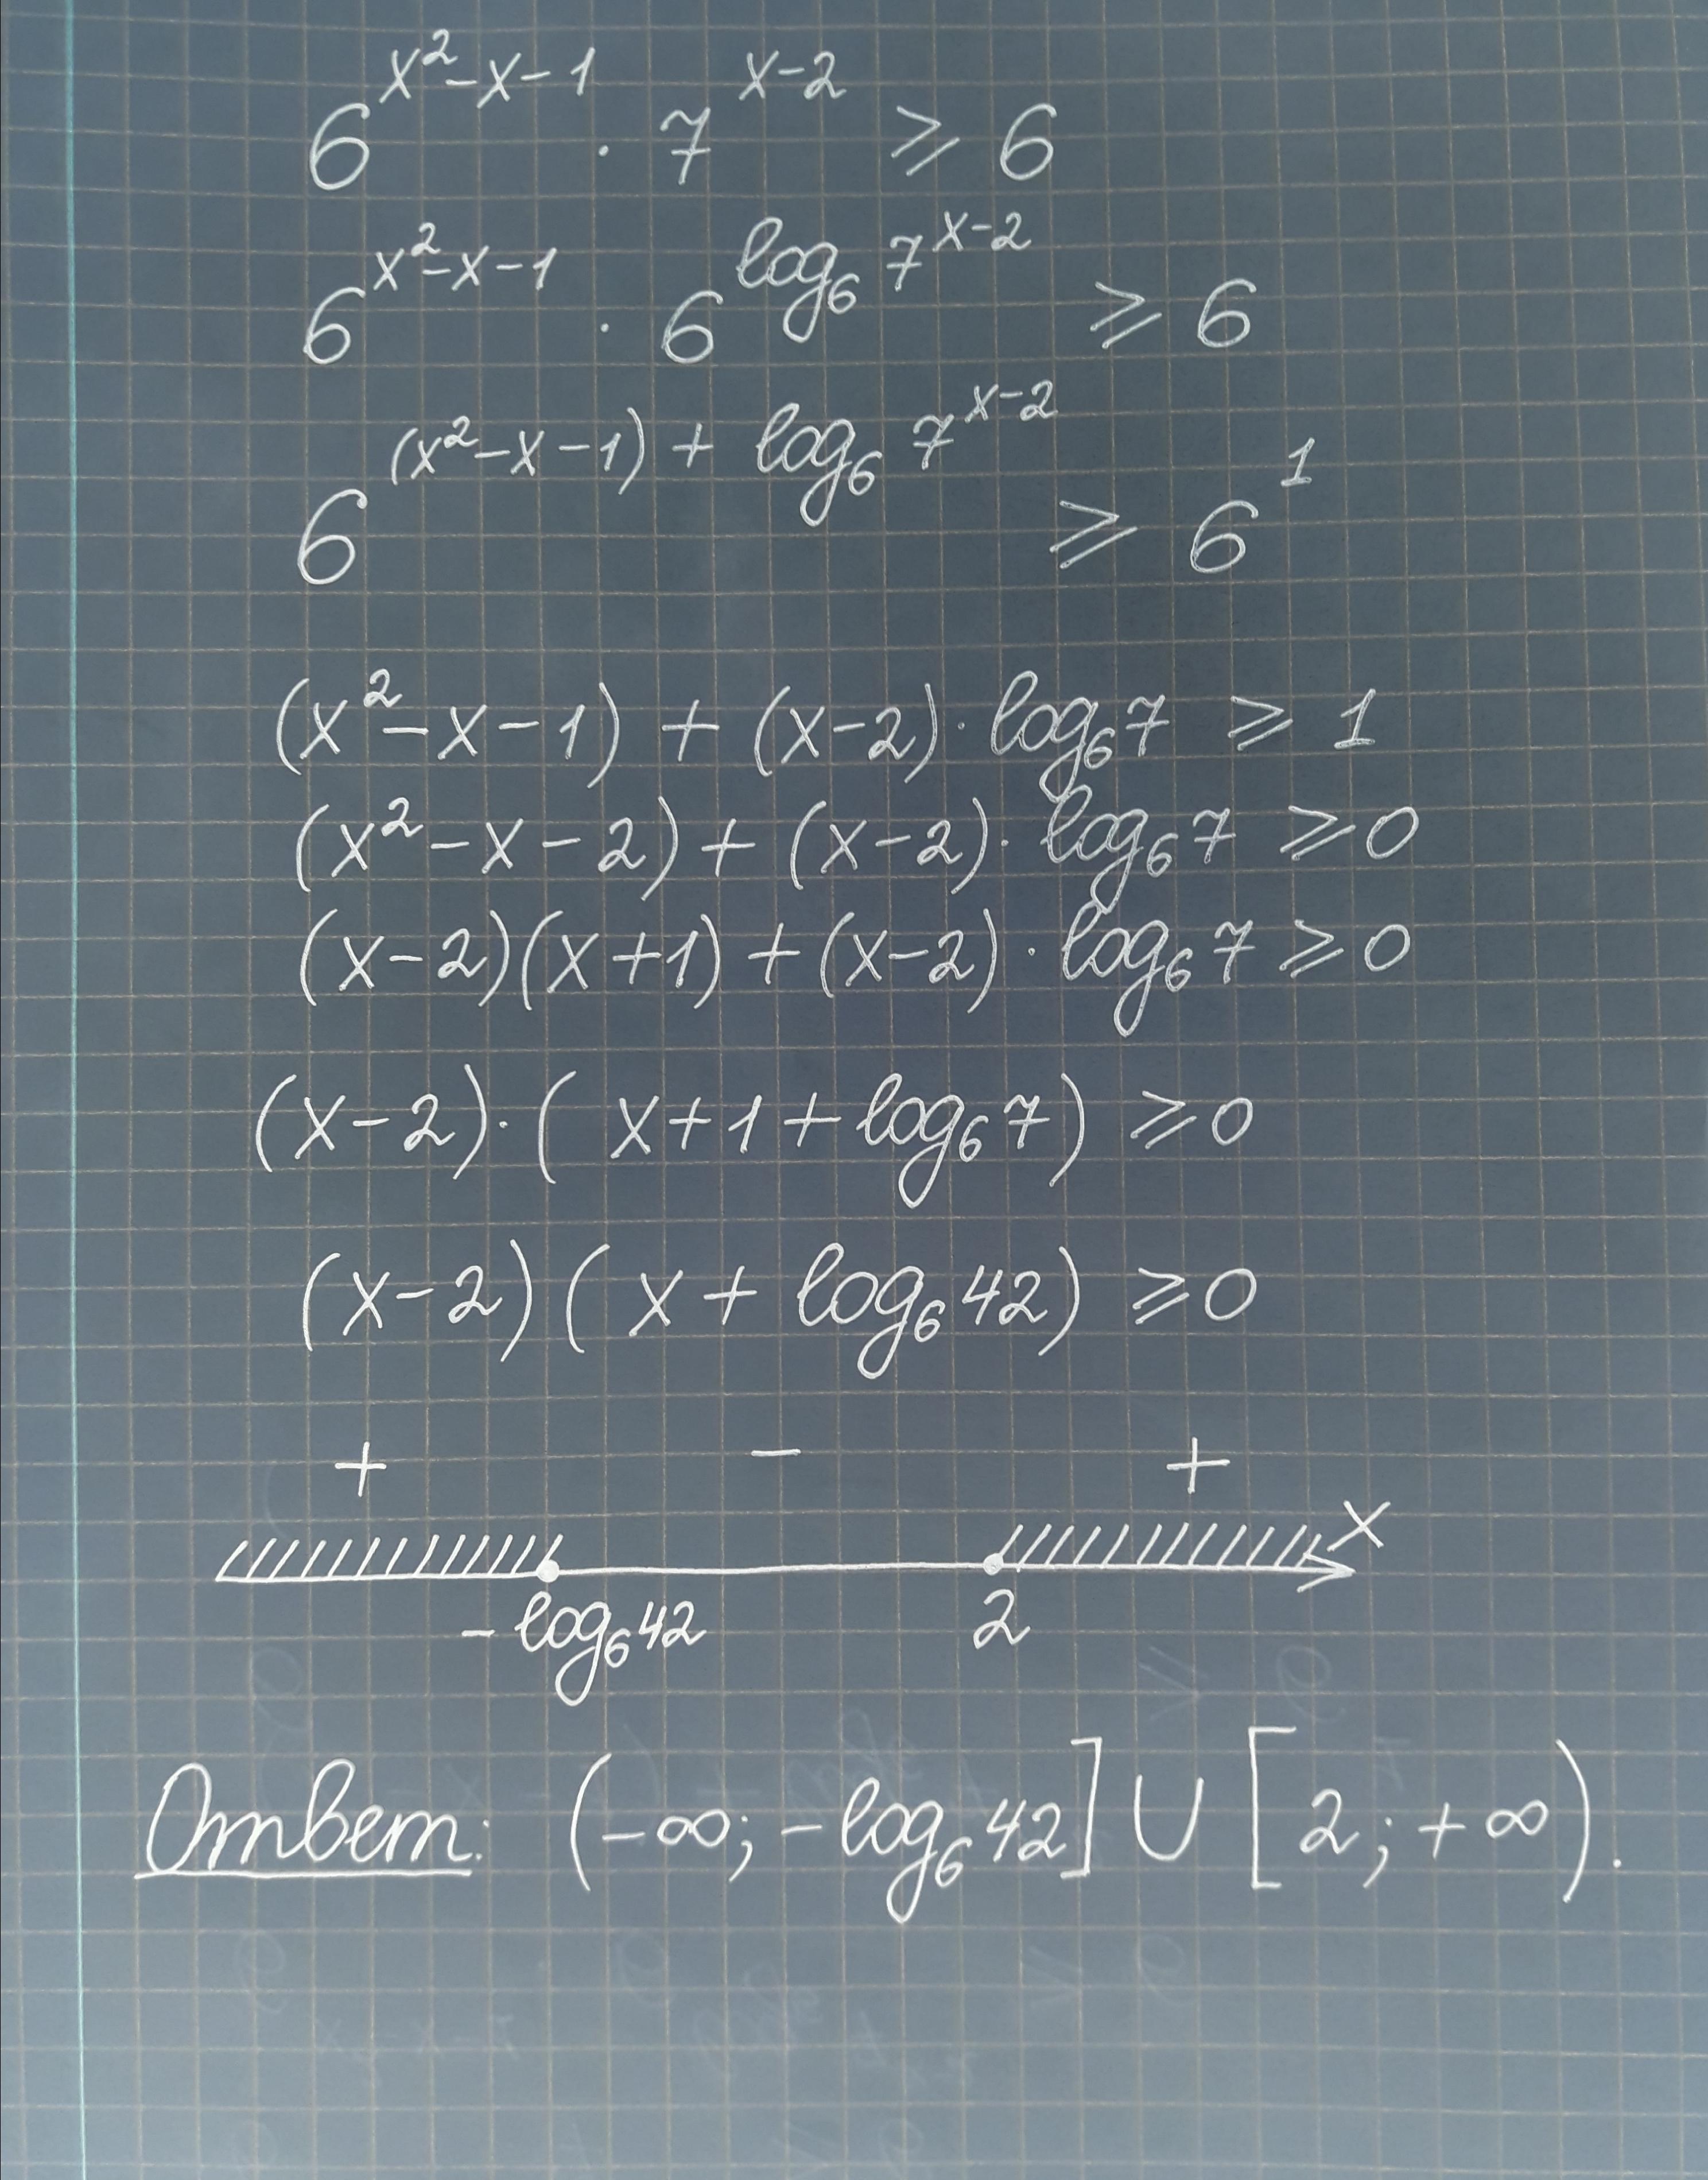 6^{x²-x-1} · 7^{x-2} ⩾ 6
6^{x²-x-1} · 6^{log₆ 7^{x-2}} ⩾ 6
6^{(x²-x-1) + log₆ 7^{x-2}} ⩾ 6¹
(x²-x-1) + (x-2) · log₆7 ⩾ 1
(x²-x-2) + (x-2) · log₆7 ⩾ 0
(x-2)(x+1) + (x-2) · log₆7 ⩾ 0
(x-2) · (x+1+log₆7) ⩾ 0
(x-2)(x + log₆42) ⩾ 0
+ − +
x
-log₆42 2
Ответ: (-∞; -log₆42] ∪ [2; +∞).